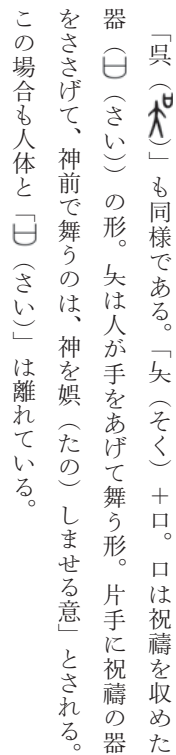 「呉（）」も同様である。「夨（そく）＋口。口は祝禱を収めた
器（𠙵（さい））の形。夨は人が手をあげて舞う形。片手に祝禱の器
をささげて、神前で舞うのは、神を娯（たの）しませる意」とされる。
この場合も人体と「𠙵（さい）」は離れている。